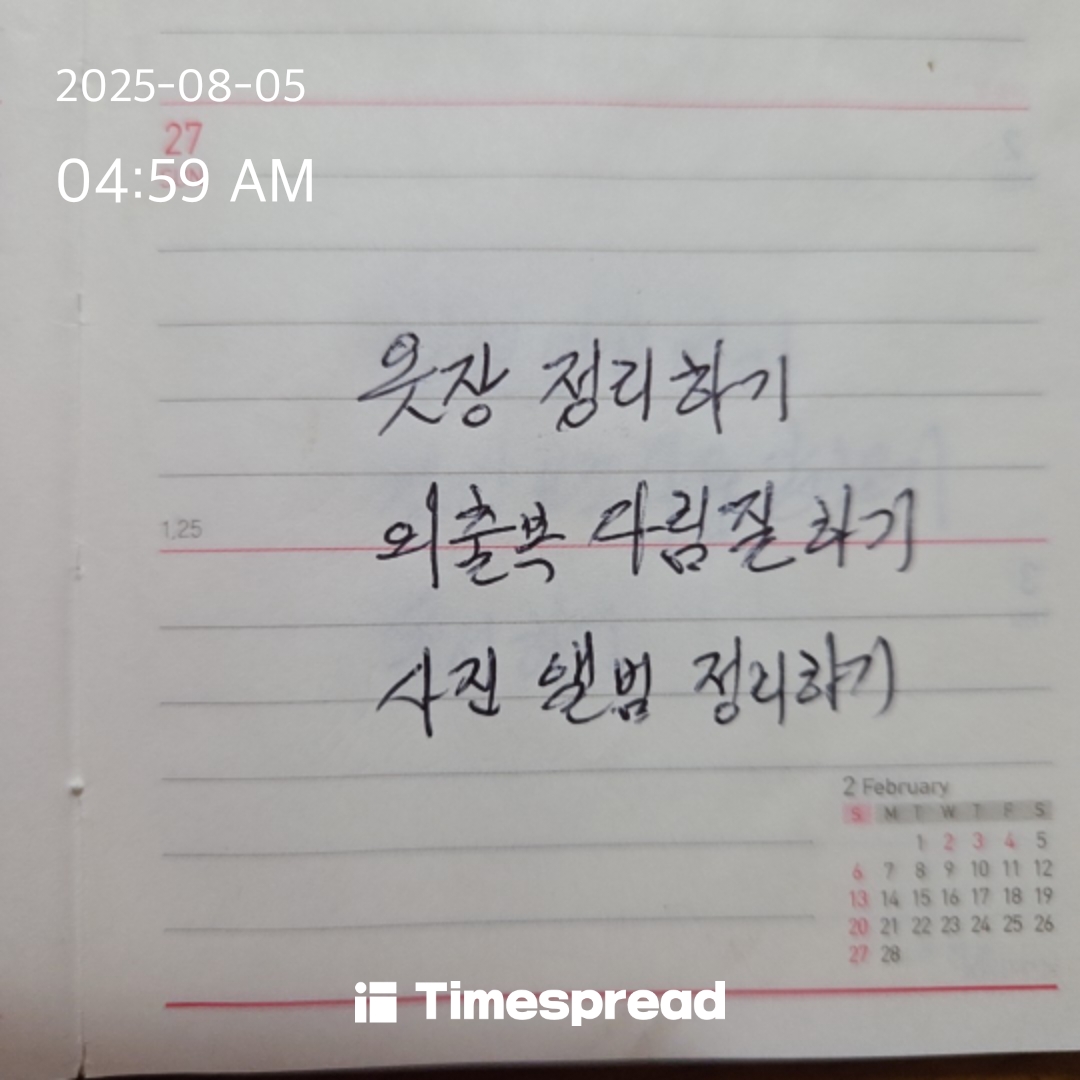 2025-08-05
27
04:59 AM
옷장 정리하기
외출복 다림질 하기
1.25
사진 앨범 정리하기
2 February
S M T W T F S
1 2 3 4 5
6 7 8 9 10 11 12
13 14 15 16 17 18 19
20 21 22 23 24 25 26
27 28
Timespread